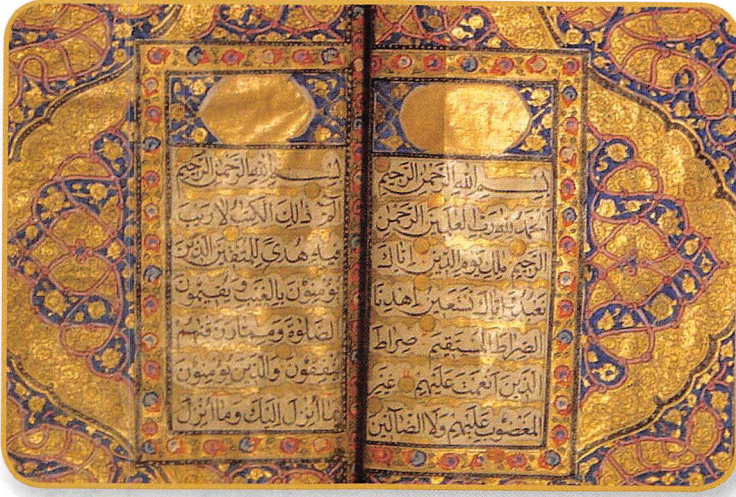 بسم الله الرحمن الرحيم
الحمد لله رب العلمين الرحمن
الرحيم ملك يوم الدين اياك
نعبد و اياك نستعين اهدنا
الصراط المستقيم صراط
الذين انعمت عليهم غير
المغضوب عليهم ولا الضالين
بسم الله الرحمن الرحيم
الم ذلك الكتب لا ريب
فيه هدى للمتقين الذين
يؤمنون بالغيب و يقيمون
الصلوة ومما رزقنهم
ينفقون والذين يؤمنون
بما انزل اليك وما انزل